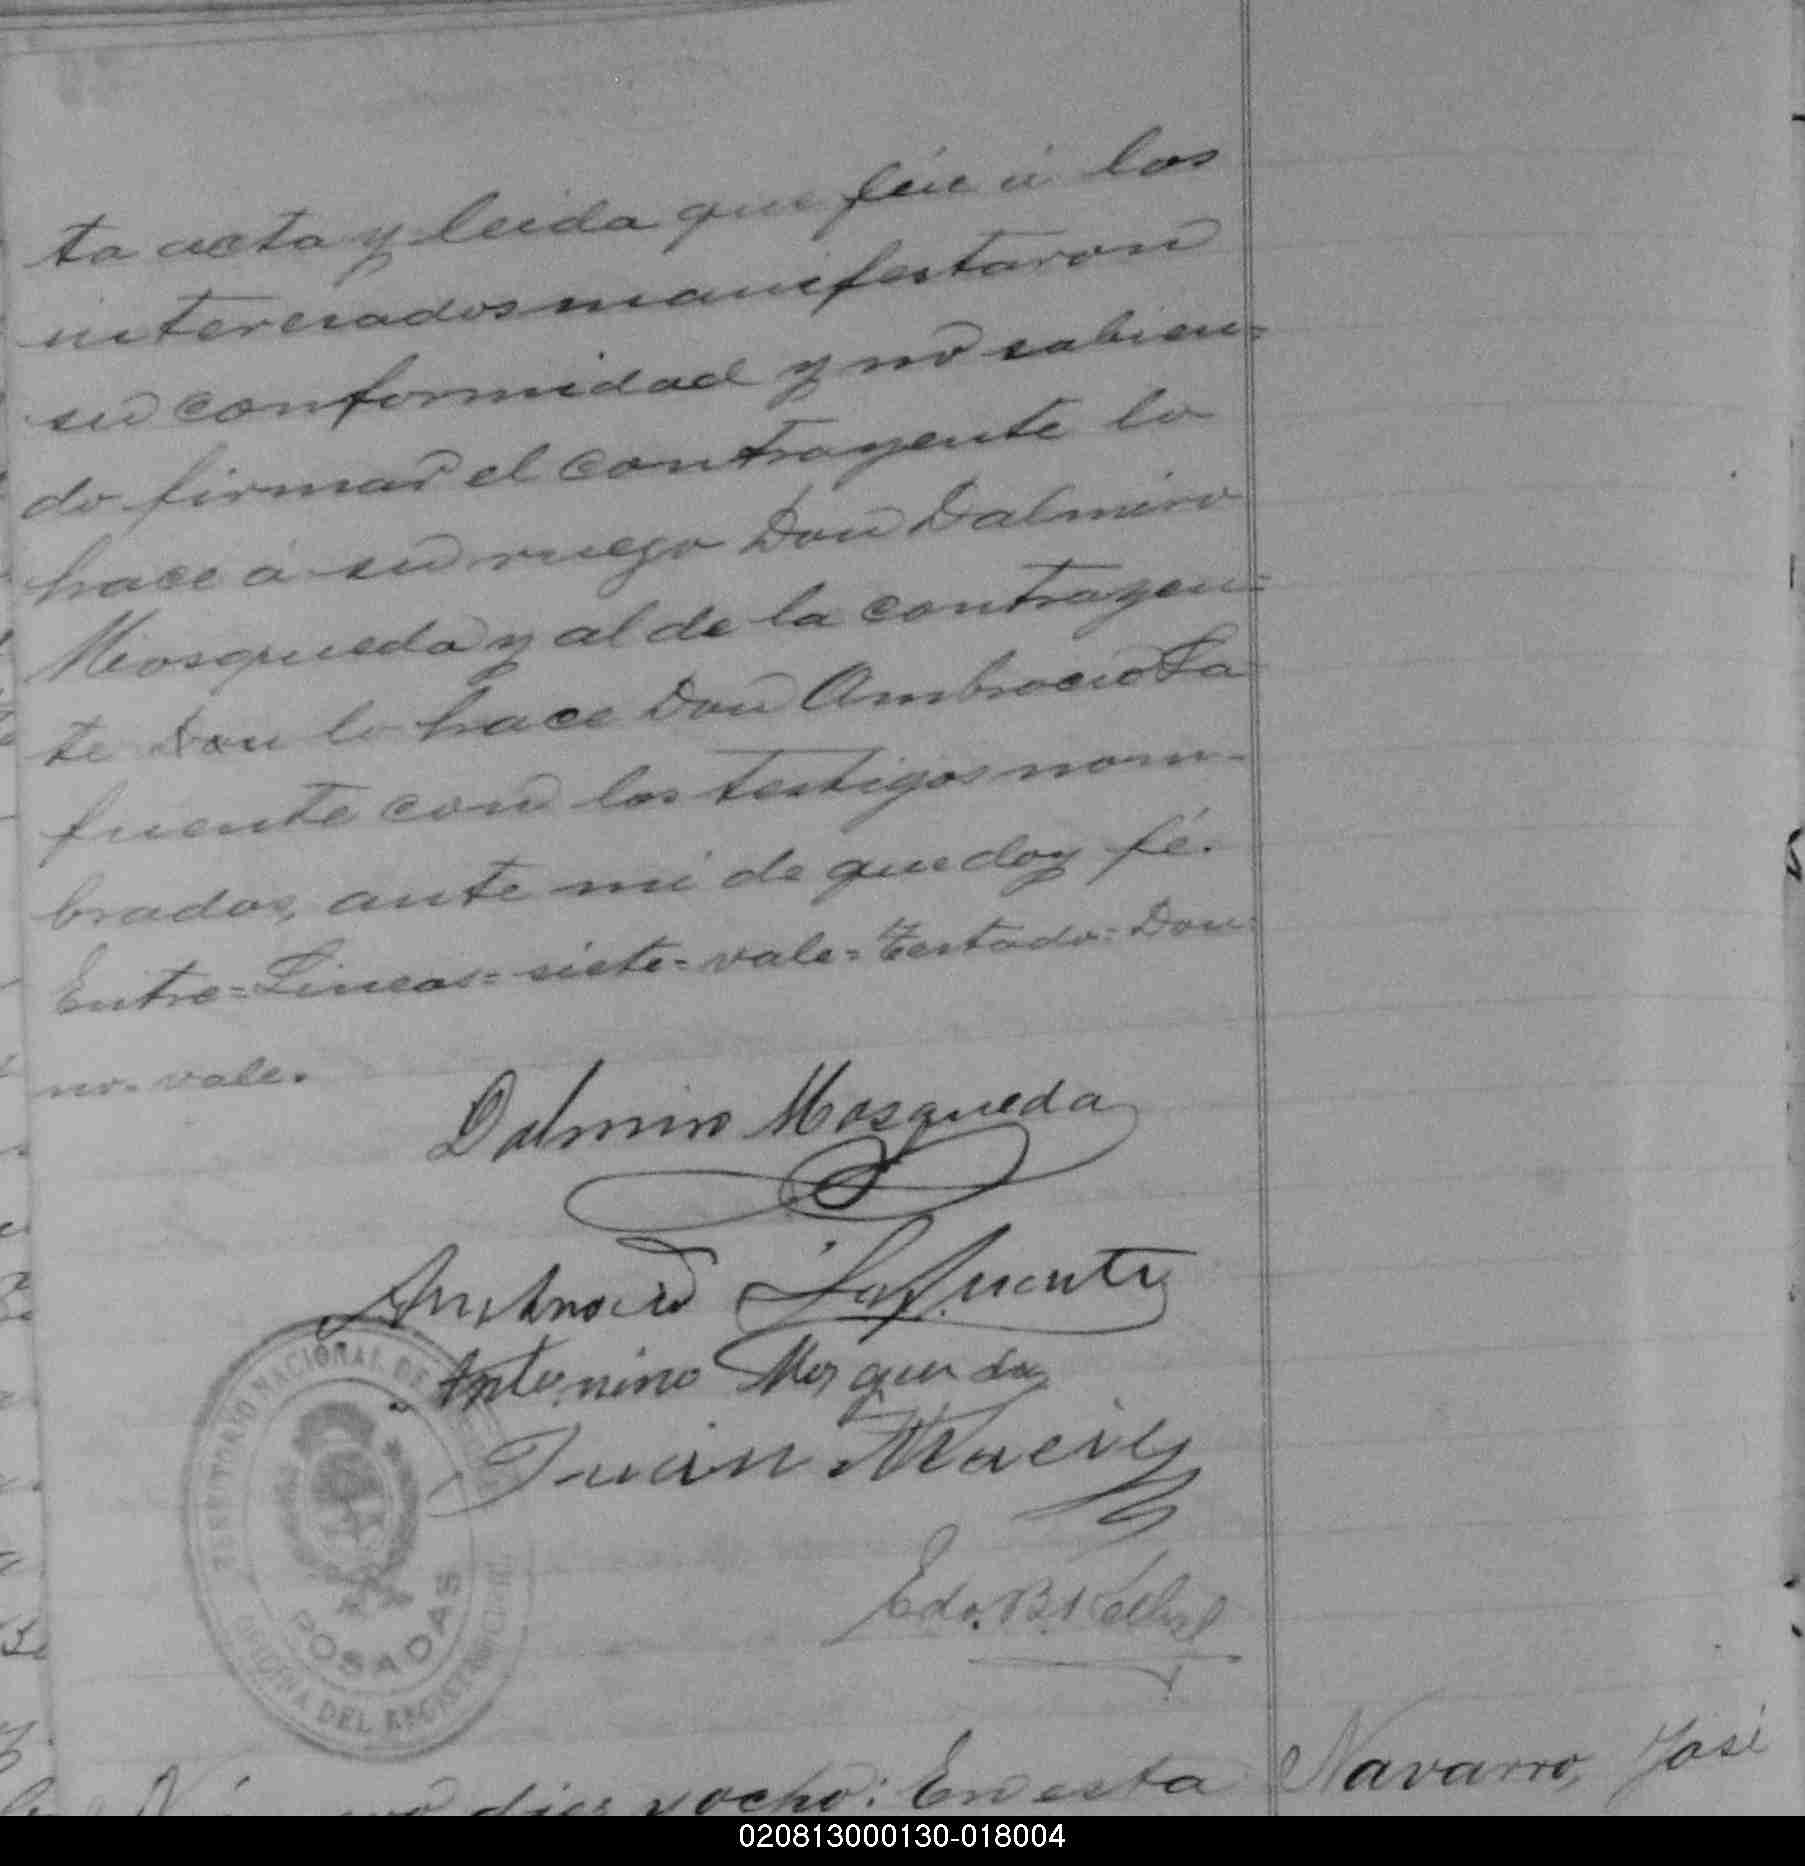 ta acta y leida que fúe á los
interesados manifestaron
su conformidad y no sabien=
do firmar el contrayente lo
hace á su ruego Don Dalmiro
Mosqueda y al de la contrayen=
te Don lo hace Don Ambrocio La=
fuente con los testigos nom-
brados, ante mi de que doy fé.
Entre=Lineas=siete=vale=Testado=Don=
no-vale.
Dalmiro Mosqueda
Ambrocio Lafuente
Antonino Mosqueda
Juan Maciel
Edo. B.
TERRITORIO NACIONAL DE
POSADAS
OFICINA DEL REGISTRO CIVIL
diez y ocho: En esta
Navarro, José
020813000130-018004